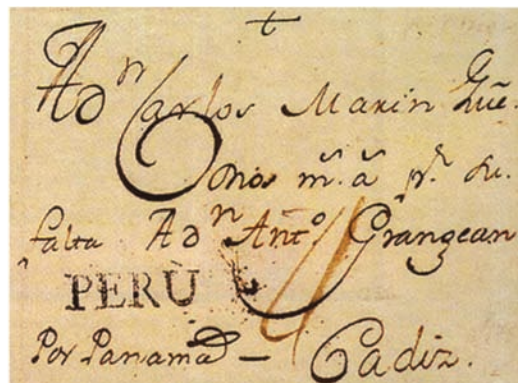 +
A dn Carlos Marin Que.
Dios ms. as. pr. su.
falta A dn Anto. Grangean
PERÙ
Por Panamá — Cadiz.